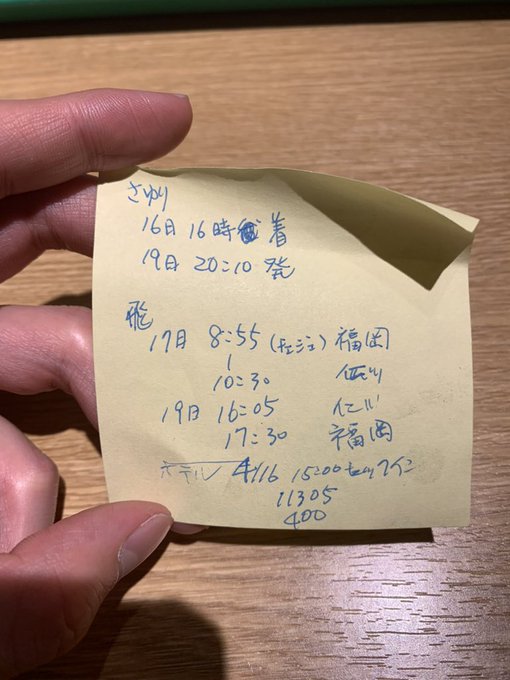 さゆり
16日 16時 着
19日 20:10 発
飛
17日 8:55 (チェジュ) 福岡
10:30
19日 16:05 仁川
17:30 福岡
ホテル 4/16 15:00 チェックイン
11305
400